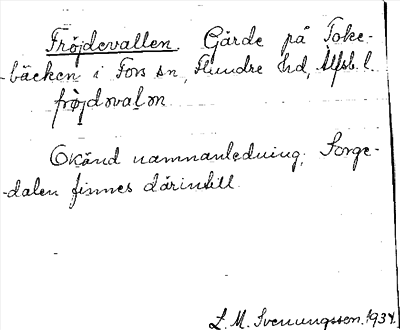 Fröjdevallen. Gärde på Toke-
-bäcken i Fors sn, Flundre hd, Älfsb. l.
fröjdovalᴐn
Okänd namnanledning; Sorge-
-dalen finnes därintill.
L. M. Svenungsson. 1934.